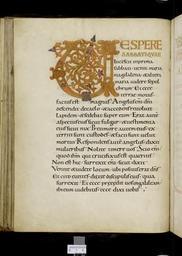 VESPERE
SABBATI QUAE
lucescit in prima
sabbati. venit maria
magdalene. et altera
maria videre sepul
chrum. Et ecce
terrae motus
factus est magnus. Angelus enim dni
descendit de caelo. et accedens revolvit
lapidem. et sedebat super eum. Erat autem
aspectus eius sicut fulgur. et vestimenta
eius sicut nix. Prae timore autem eius ex
territi sunt custodes. et facti sunt velut
mortui. Respondens autem angelus dixit
mulieribus. Nolite timere vos. Scio enim
quod ihm qui crucifixus est queritis
Non est hic. surrexit enim sicut dixit
Venite videte locum ubi positus erat dns
Et cito euntes dicite discipulis eius quia
surrexit. Et ecce precedit vos in galileam
ibi eum videbitis. ecce dixi vobis.